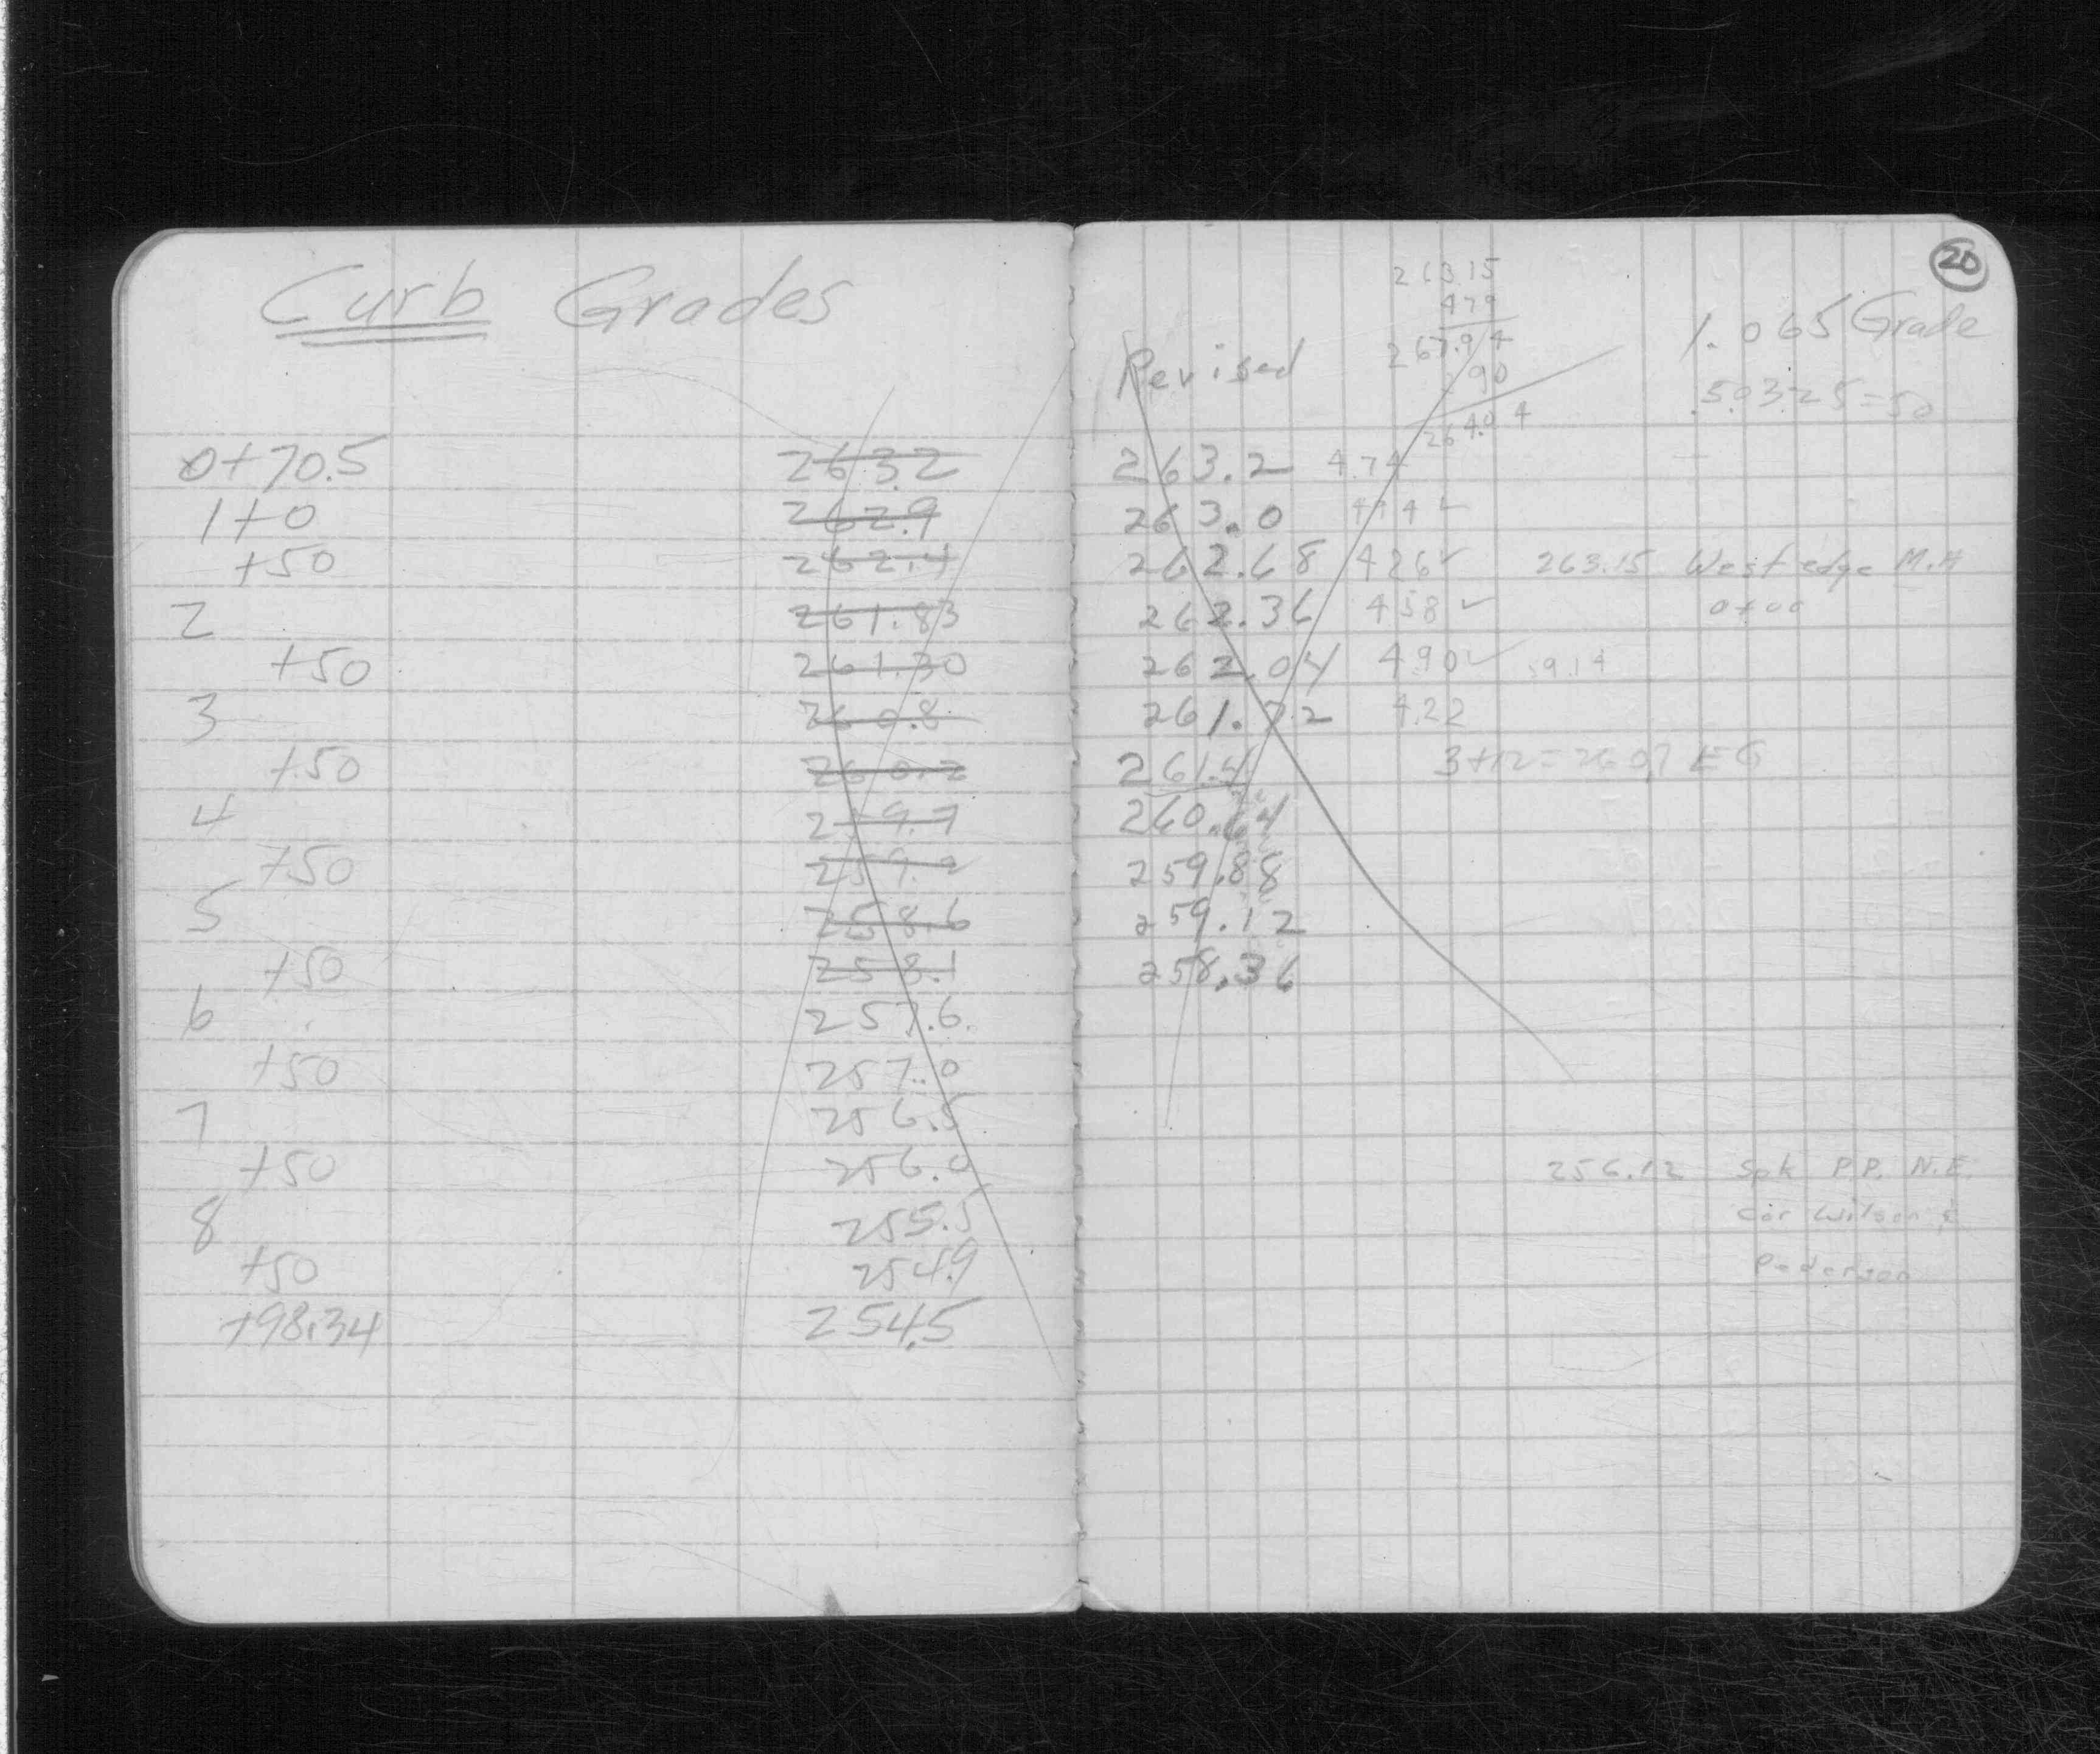 Curb Grades
0+70.5 263.2
1+0 262.9
+50 262.4
2 261.83
+50 261.30
3 260.8
+50 260.2
4 259.7
+50 259.2
5 258.6
+50 258.1
6 257.6
+50 257.0
7 256.5
+50 256.0
8 255.5
+50 254.9
+98.34 254.5
20
263.15
479
267.94
90
264.04
1.065 Grade
.50325=50
Revised
263.2 4.74
263.0 4
262.68 426✓ 263.15 West edge M.H
262.36 458✓ 0+00
262.04 4.90✓ .914
261.72 4.22
261.4 3+12=260.7 EG
260.64
259.88
259.12
258.36
256.12 Spk P.P. N.E.
cor Wilson &
Pederson